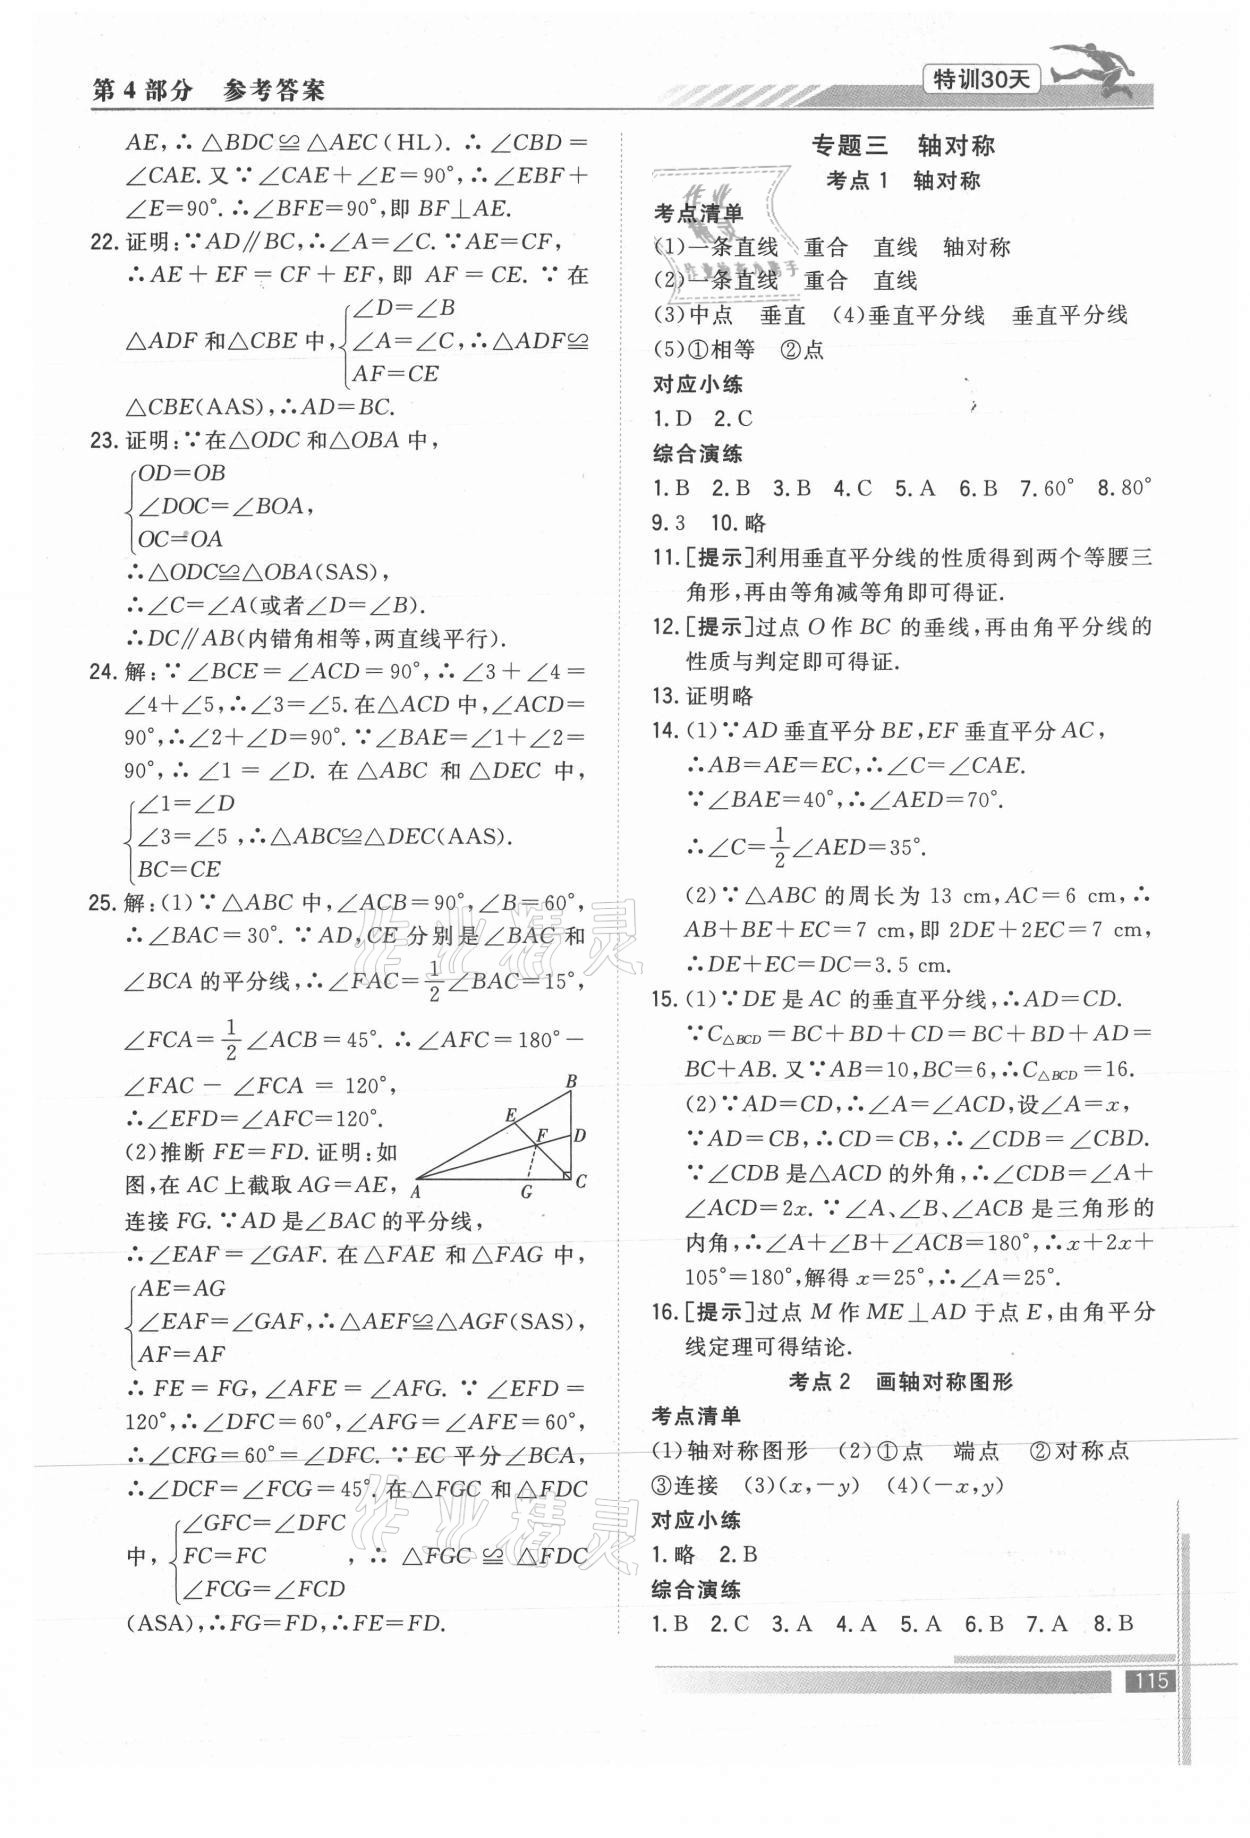 第4部分 参考答案
特训30天
AE,∴△BDC≌△AEC(HL).∴∠CBD=
∠CAE.又∵∠CAE+∠E=90°,∴∠EBF+
∠E=90°.∴∠BFE=90°,即BF⊥AE.
22.证明:∵AD∥BC,∴∠A=∠C.∵AE=CF,
∴AE+EF=CF+EF,即 AF=CE.∵在
∠D=∠B
△ADF和△CBE中,∠A=∠C,∴△ADF≌
AF=CE
△CBE(AAS),∴AD=BC.
23.证明:∵在△ODC和△OBA中,
OD=OB
∠DOC=∠BOA,
OC=OA
∴△ODC≌△OBA(SAS),
∴∠C=∠A(或者∠D=∠B).
∴DC∥AB(内错角相等,两直线平行).
24.解:∵∠BCE=∠ACD=90°,∴∠3+∠4=
∠4+∠5,∴∠3=∠5.在△ACD中,∠ACD=
90°,∴∠2+∠D=90°.∵∠BAE=∠1+∠2=
90°,∴∠1=∠D.在△ABC 和△DEC 中,
∠1=∠D
∠3=∠5 ,∴△ABC≌△DEC(AAS).
BC=CE
25.解:(1)∵△ABC中,∠ACB=90°,∠B=60°,
∴∠BAC=30°.∵AD,CE分别是∠BAC和
∠BCA的平分线,∴∠FAC=1/2∠BAC=15°,
∠FCA=1/2∠ACB=45°.∴∠AFC=180°-
∠FAC-∠FCA=120°,
∴∠EFD=∠AFC=120°.
(2)推断FE=FD.证明:如
图,在AC上截取AG=AE,
连接FG.∵AD是∠BAC的平分线,
B
E
F
D
A
G
C
∴∠EAF=∠GAF.在△FAE和△FAG中,
AE=AG
∠EAF=∠GAF,∴△AEF≌△AGF(SAS),
AF=AF
∴FE=FG,∠AFE=∠AFG.∵∠EFD=
120°,∴∠DFC=60°,∠AFG=∠AFE=60°,
∴∠CFG=60°=∠DFC.∵EC平分∠BCA,
∴∠DCF=∠FCG=45°.在△FGC和△FDC
∠GFC=∠DFC
中,FC=FC ,∴△FGC≌△FDC
∠FCG=∠FCD
(ASA),∴FG=FD,∴FE=FD.
专题三 轴对称
考点1 轴对称
考点清单
(1)一条直线 重合 直线 轴对称
(2)一条直线 重合 直线
(3)中点 垂直 (4)垂直平分线 垂直平分线
(5)①相等 ②点
对应小练
1.D 2.C
综合演练
1.B 2.B 3.B 4.C 5.A 6.B 7.60° 8.80°
9.3 10.略
11.[提示]利用垂直平分线的性质得到两个等腰三
角形,再由等角减等角即可得证.
12.[提示]过点O作BC的垂线,再由角平分线的
性质与判定即可得证.
13.证明略
14.(1)∵AD垂直平分BE,EF垂直平分AC,
∴AB=AE=EC,∴∠C=∠CAE.
∵∠BAE=40°,∴∠AED=70°.
∴∠C=1/2∠AED=35°.
(2)∵△ABC的周长为13 cm,AC=6 cm,∴
AB+BE+EC=7 cm,即2DE+2EC=7 cm,
∴DE+EC=DC=3.5 cm.
15.(1)∵DE是AC的垂直平分线,∴AD=CD.
∵C△BCD=BC+BD+CD=BC+BD+AD=
BC+AB.又∵AB=10,BC=6,∴C△BCD=16.
(2)∵AD=CD,∴∠A=∠ACD,设∠A=x,
∵AD=CB,∴CD=CB,∴∠CDB=∠CBD.
∵∠CDB是△ACD的外角,∴∠CDB=∠A+
∠ACD=2x.∵∠A、∠B、∠ACB是三角形的
内角,∴∠A+∠B+∠ACB=180°,∴x+2x+
105°=180°,解得x=25°,∴∠A=25°.
16.[提示]过点M作ME⊥AD于点E,由角平分
线定理可得结论.
考点2 画轴对称图形
考点清单
(1)轴对称图形 (2)①点 端点 ②对称点
③连接 (3)(x,-y) (4)(-x,y)
对应小练
1.略 2.B
综合演练
1.B 2.C 3.A 4.A 5.A 6.B 7.A 8.B
115
作业精灵
作业精灵
作业
精灵